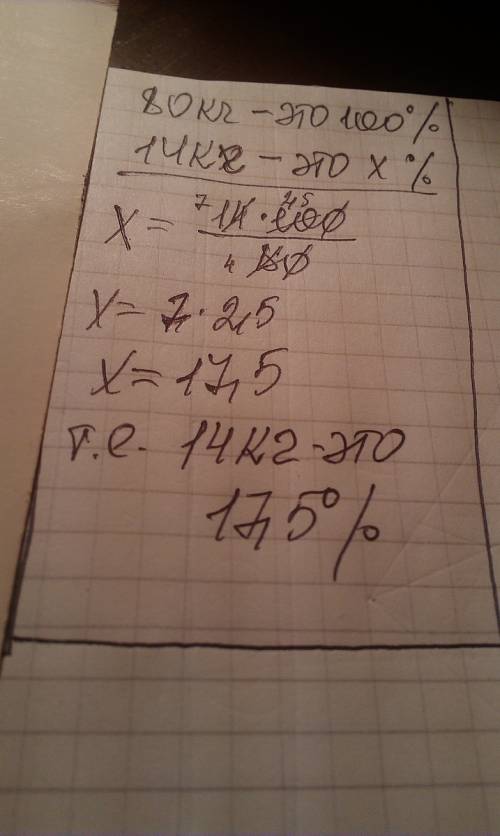 80кг – это 100%
14кг – это х %
X = 14 · 100 / 80
7 2,5
4
X = 7 · 2,5
X = 17,5
т.е. 14кг - это
17,5%